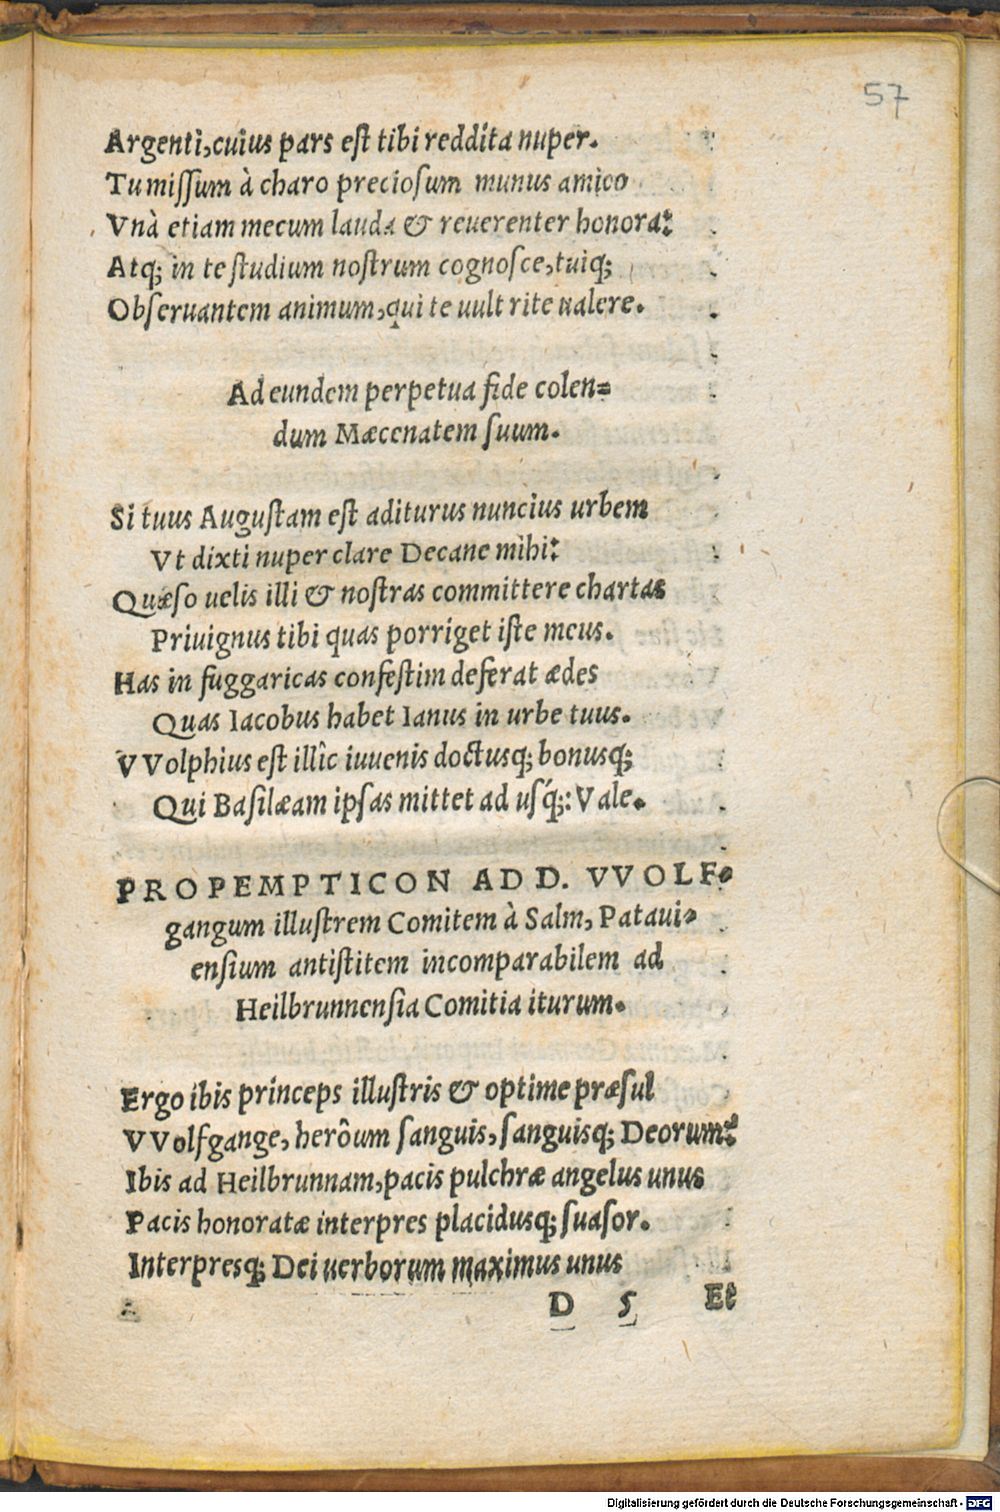 57
Argenti, cuius pars est tibi reddita nuper.
Tu missum à charo preciosum munus amico
Vnà etiam mecum lauda & reuerenter honora:
Atq; in te studium nostrum cognosce, tuiq;
Obseruantem animum, qui te uult rite ualere.
Ad eundem perpetua fide colen=
dum Mæcenatem suum.
Si tuus Augustam est aditurus nuncius urbem
Vt dixti nuper clare Decane mihi:
Quæso uelis illi & nostras committere chartas
Priuignus tibi quas porriget iste meus.
Has in fuggaricas confestim deferat ædes
Quas Iacobus habet Ianus in urbe tuus.
VVolphius est illîc iuuenis doctusq; bonusq;
Qui Basilæam ipsas mittet ad usq́;: Vale.
PROPEMPTICON AD D. VVOLF=
gangum illustrem Comitem à Salm, Pataui=
ensium antistitem incomparabilem ad
Heilbrunnensia Comitia iturum.
Ergo ibis princeps illustris & optime præsul
VVolfgange, herôum sanguis, sanguisq; Deorum:
Ibis ad Heilbrunnam, pacis pulchræ angelus unus
Pacis honoratæ interpres placidusq; suasor.
Interpresq; Dei uerborum maximus unus
D 5 Et
Digitalisierung gefördert durch die Deutsche Forschungsgemeinschaft - DFG